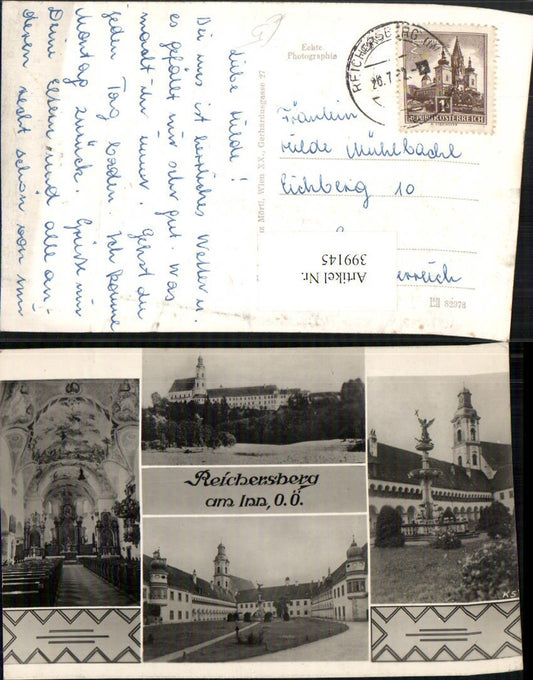 Liebe Hilde!
Bei uns ist herrliches Wetter u.
es gefällt mir sehr gut. Was
machst du immer. Gehst du
jeden Tag baden. Ich komme
Montag zurück. Grüße mir
Deine Eltern und alle an-
deren recht schön von mir
Echte
Photographie
Mörtl, Wien XX., Gerhardusgasse 27
REICHERSBERG
26.7.
REPUBLIK ÖSTERREICH
Fräulein
Hilde Mühlbachl
Eichberg 10
erreich
Artikel Nr.
399145
82978
Reichersberg
am Inn, O.Ö.
KS